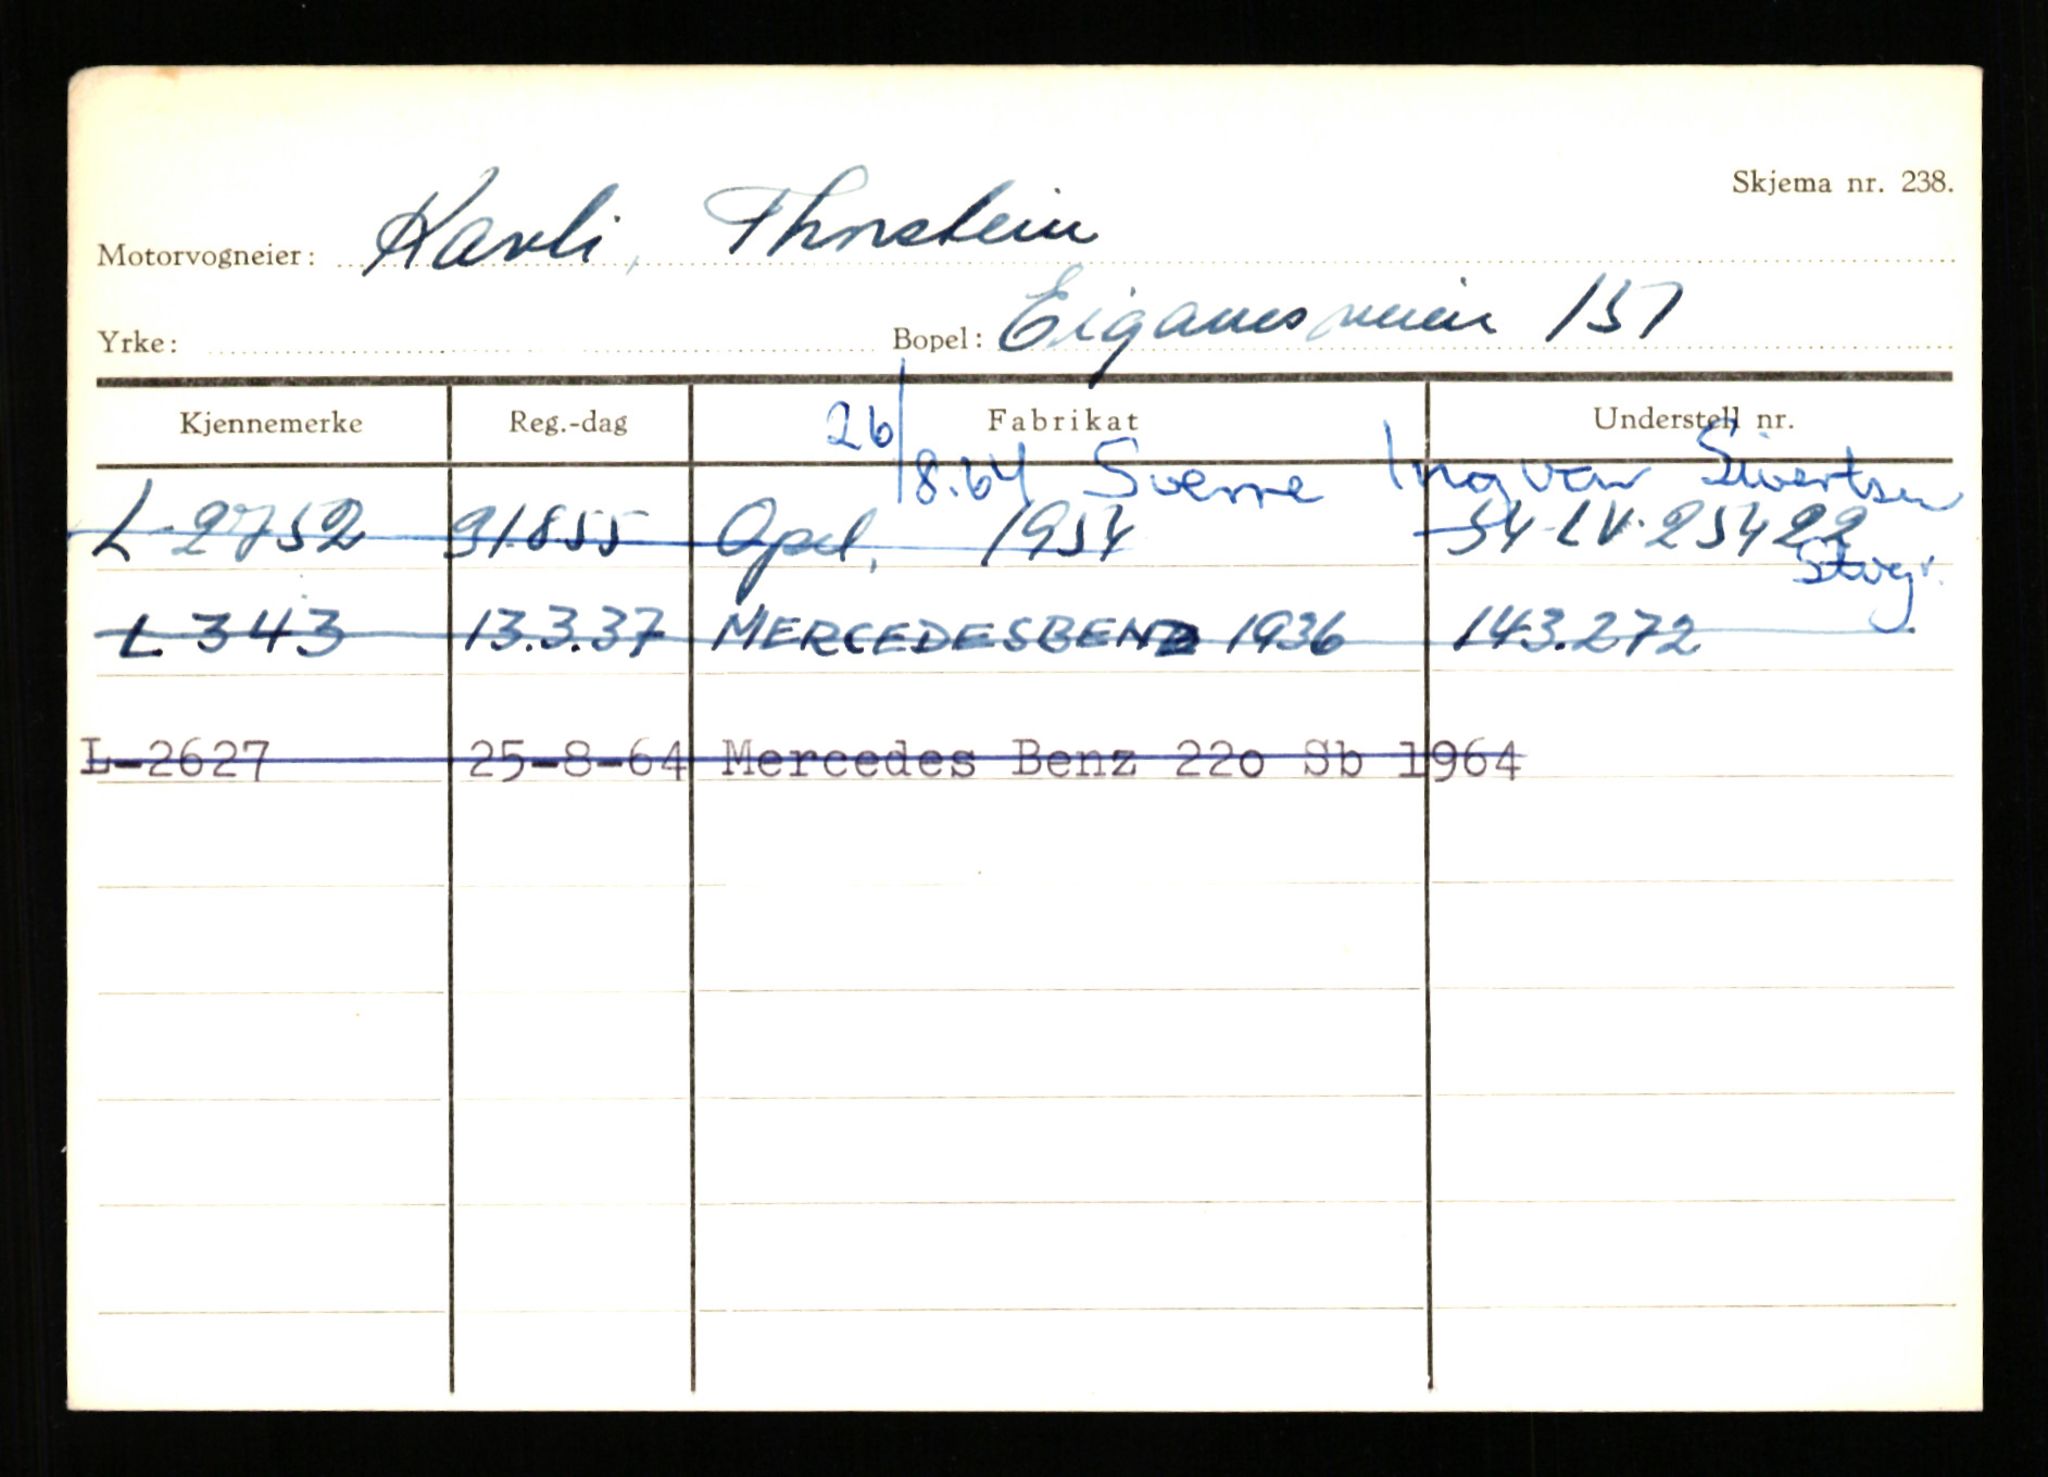 Skjema nr. 238.
Motorvogneier: Kavli, Thorstein
Yrke: Bopel: Eiganesveien 157
Kjennemerke Reg.-dag Fabrikat Understell nr.
26/8.64 Sverre Ingvar Sivertsen
L 2752 31.8.55 Opel, 1954 54-LV-25422
Stvgr.
L 343 13.3.37 MERCEDESBENZ 1936 143.272
L-2627 25-8-64 Mercedes Benz 22o Sb 1964